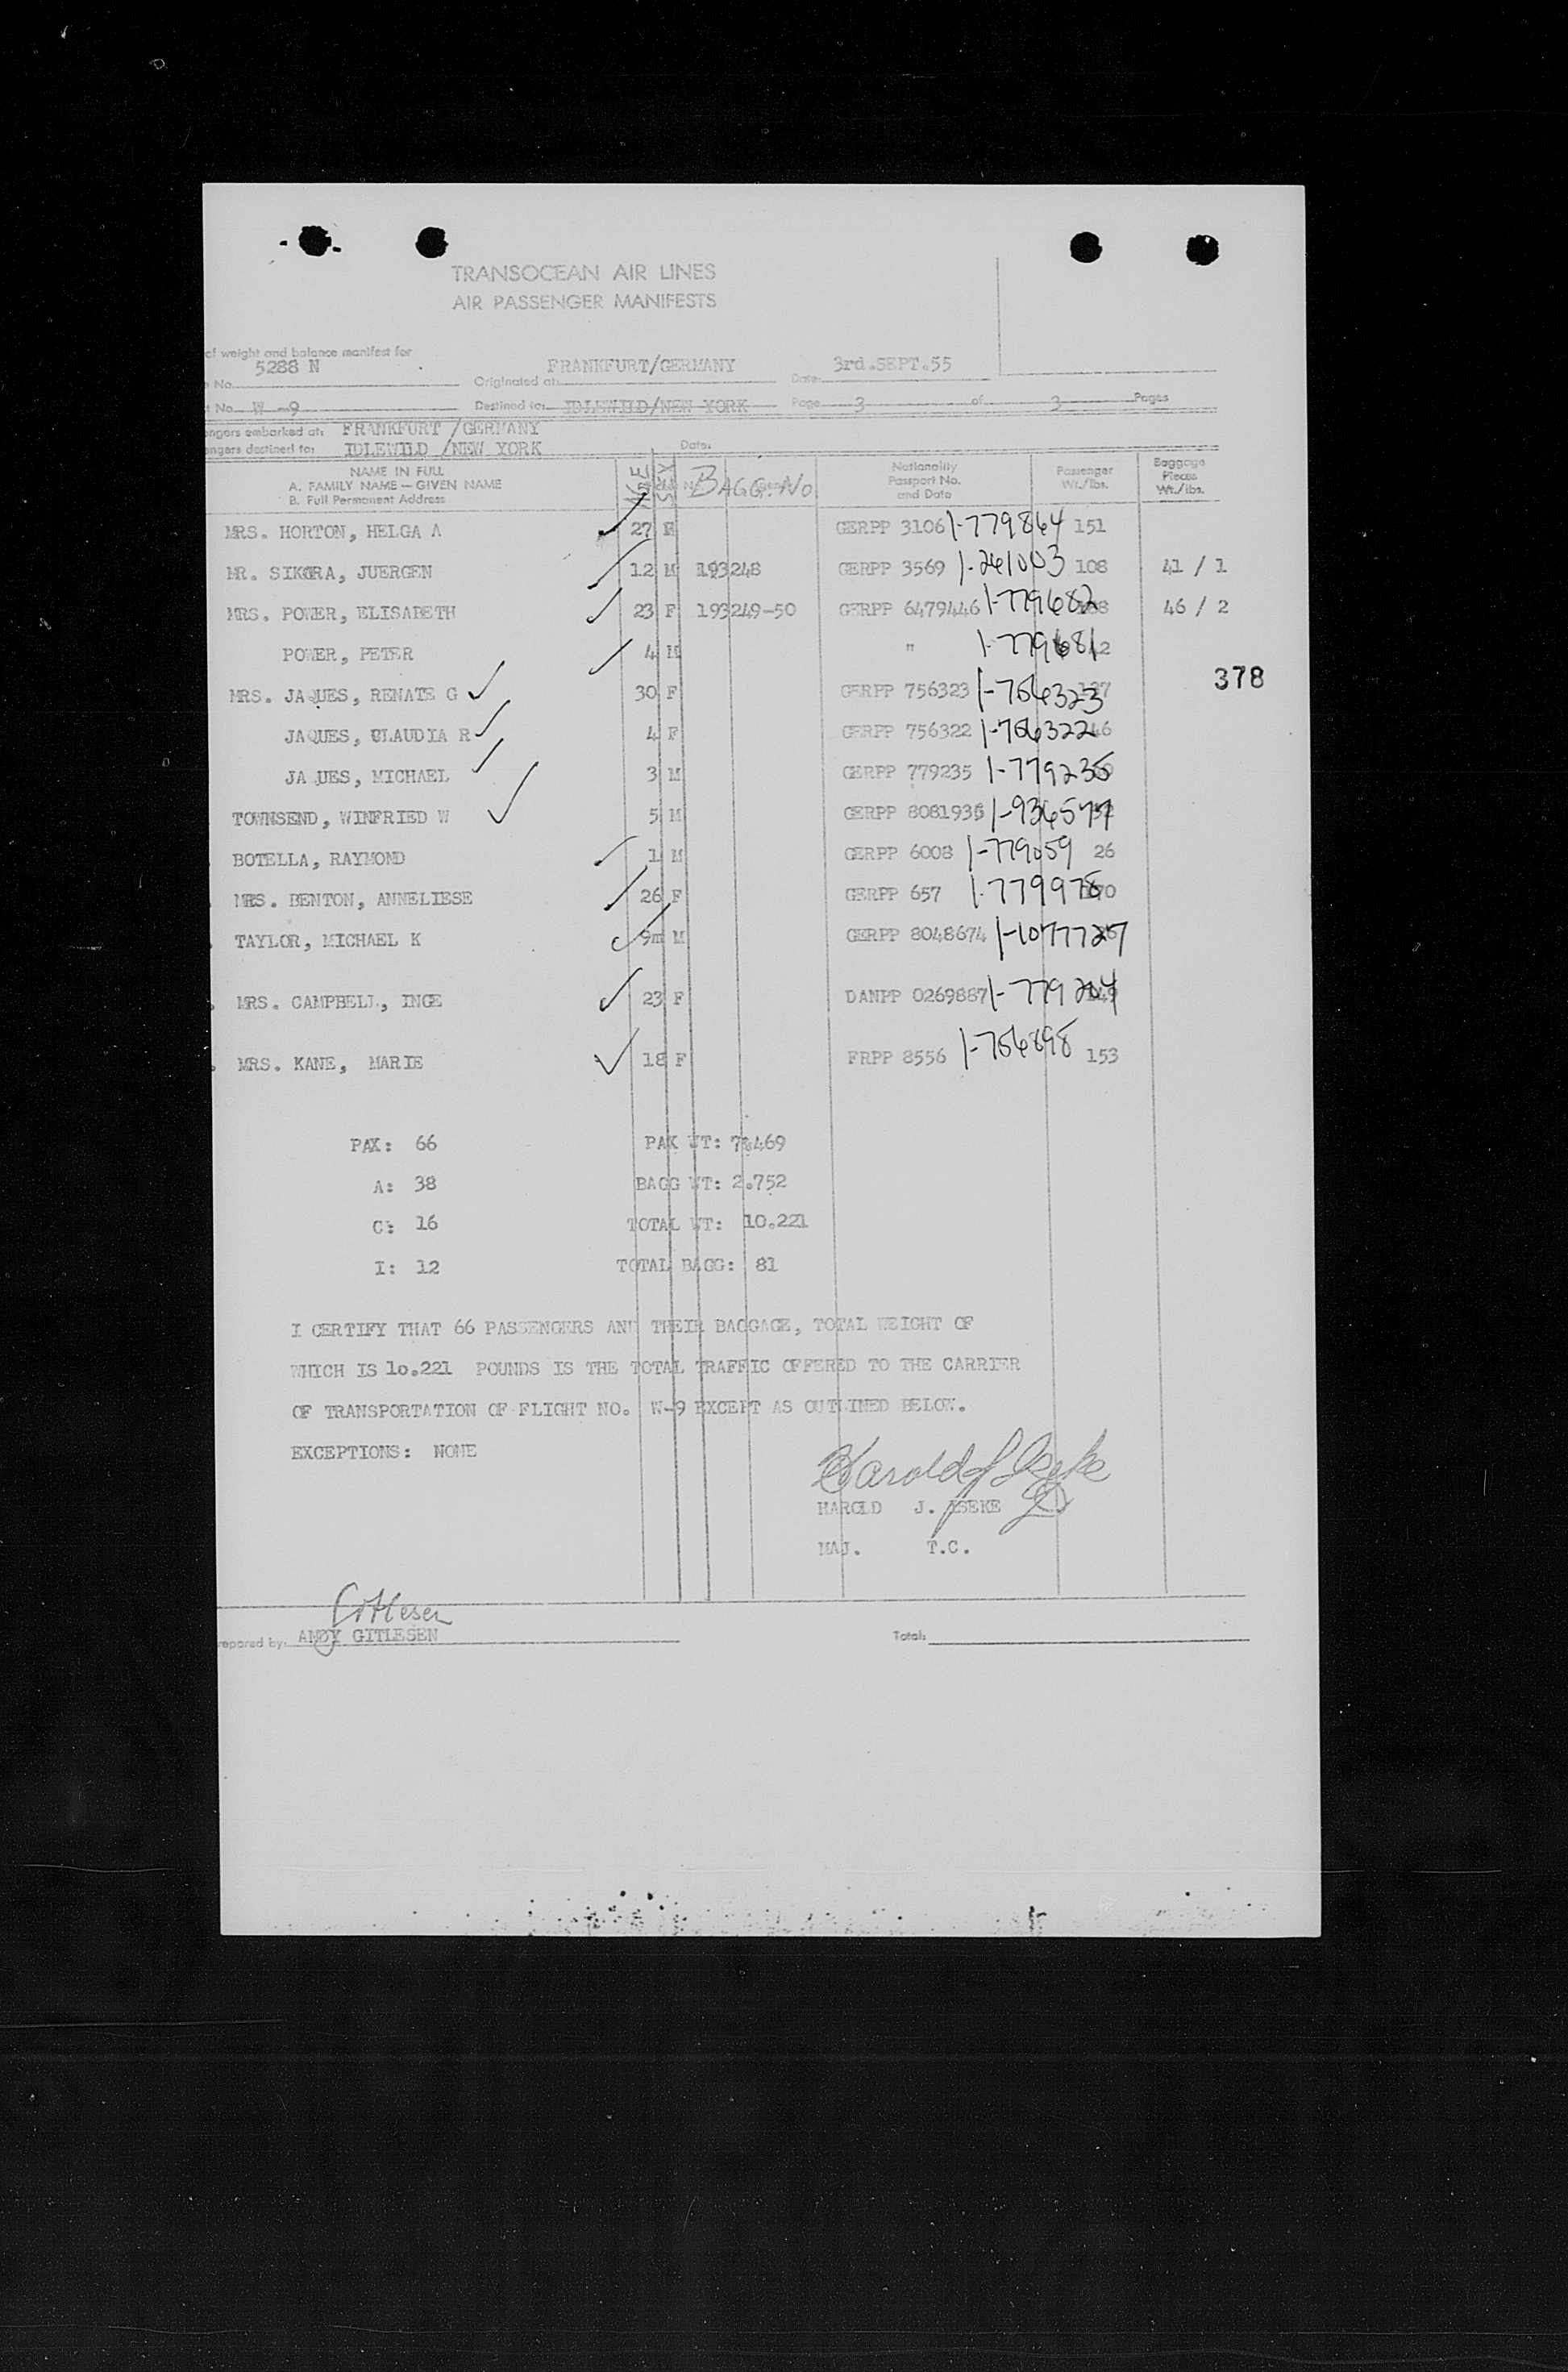 TRANSOCEAN AIR LINES
AIR PASSENGER MANIFESTS
of weight and balance manifest for
5288 N FRANKFURT/GERMANY 3rd.SEPT.55
No. Originated at: Date
No. W -9 Destined to: IDLEWILD/NEW YORK Page 3 of 3 Pages
engers embarked at: FRANKFURT /GERMANY
engers destined to: IDLEWILD /NEW YORK Date:
NAME IN FULL
A. FAMILY NAME — GIVEN NAME
B. Full Permanent Address
AGE SEX BAGG. No
Nationality
Passport No.
and Date
Passenger
Wt./lbs.
Baggage
Pieces
Wt./lbs.
MRS. HORTON, HELGA A 27 F GERPP 3106 1-779864 151
MR. SIKORA, JUERGEN 12 M 193248 GERPP 3569 1-261003 108 41 / 1
MRS. POWER, ELISABETH 23 F 193249-50 GERPP 6479446 1-779682 46 / 2
POWER, PETER 4 M " 1-779681
MRS. JAQUES, RENATE G 30 F GERPP 756323 1-756323
378
JAQUES, CLAUDIA R 4 F GERPP 756322 1-756322 46
JAQUES, MICHAEL 3 M GERPP 779235 1-779235
TOWNSEND, WINFRIED W 5 M GERPP 8081936 1-936577
BOTELLA, RAYMOND 1 M GERPP 6008 1-779059 26
MRS. BENTON, ANNELIESE 26 F GERPP 657 1-779978
TAYLOR, MICHAEL K 9m M GERPP 8048674 1-1077727
MRS. CAMPBELL, INGE 23 F DANPP 0269887 1-779204
MRS. KANE, MARIE 18 F FRPP 8556 1-756898 153
PAX: 66 PAX WT: 7.469
A: 38 BAGG WT: 2.752
C: 16 TOTAL WT: 10.221
I: 12 TOTAL BAGG: 81
I CERTIFY THAT 66 PASSENGERS AND THEIR BAGGAGE, TOTAL WEIGHT OF
WHICH IS 10.221 POUNDS IS THE TOTAL TRAFFIC OFFERED TO THE CARRIER
OF TRANSPORTATION OF FLIGHT NO. W-9 EXCEPT AS OUTLINED BELOW.
EXCEPTIONS: NONE
Harold J Iseke
HAROLD J. ISEKE
MAJ. T.C.
Gitlesen
repared by: ANDY GITLESEN Total: